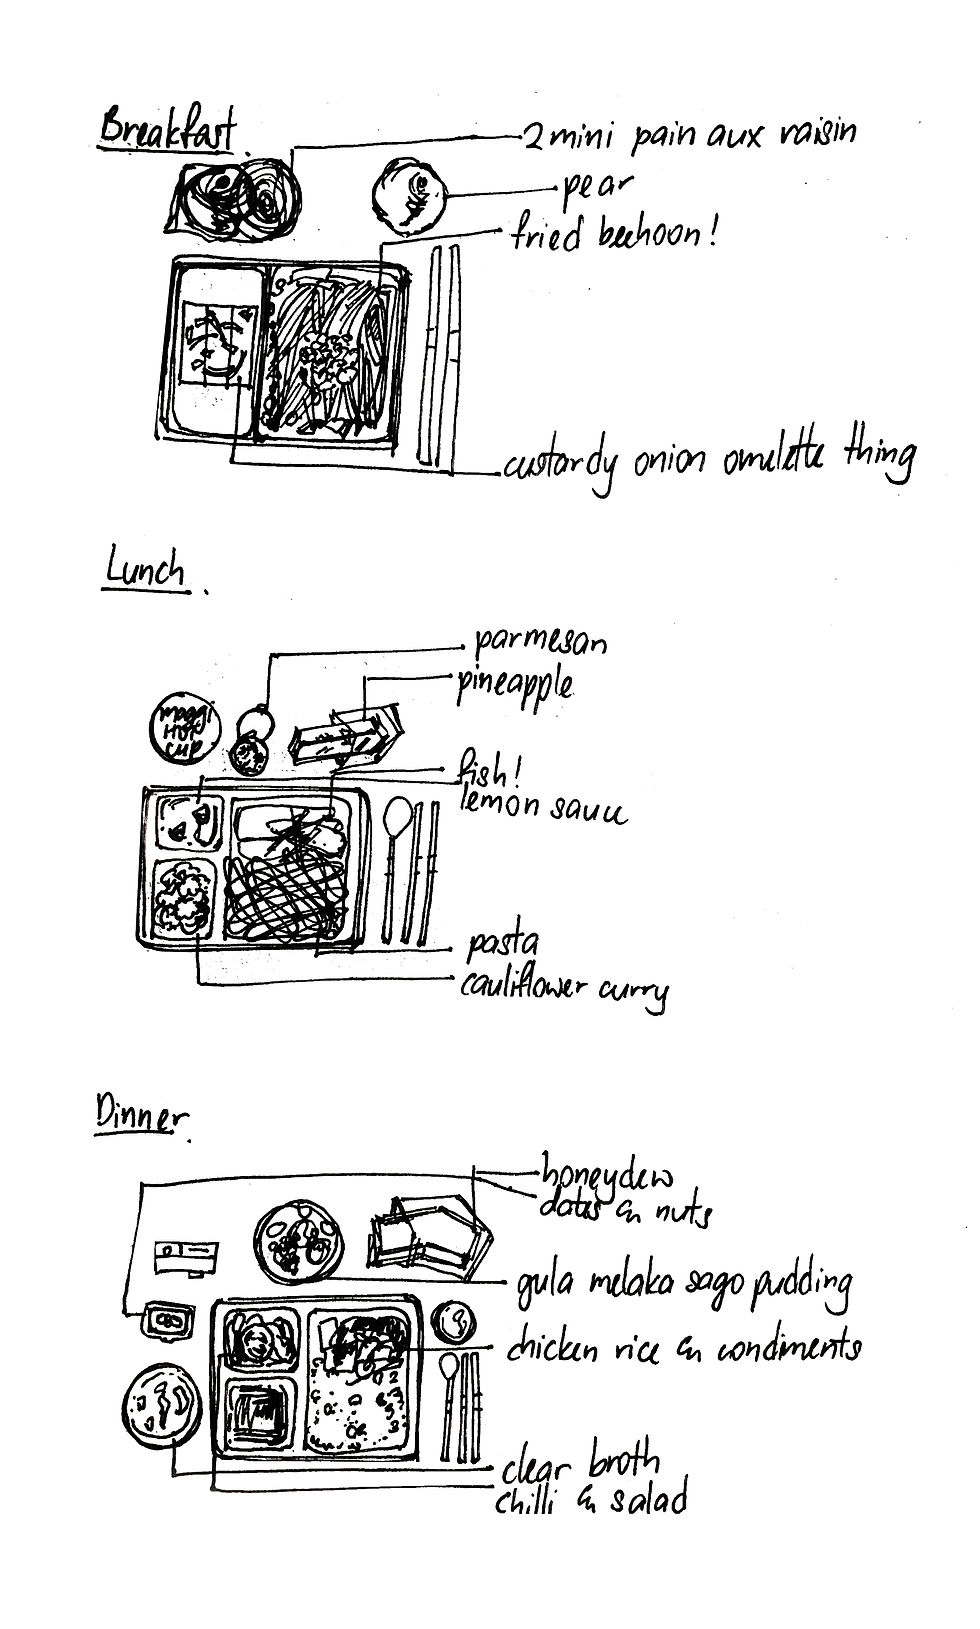 Breakfast.
2 mini pain aux raisin
pear
fried beehoon!
custardy onion omelette thing
Lunch.
parmesan
pineapple
maggi
HOT
cup
fish!
lemon sauce
pasta
cauliflower curry
Dinner.
honeydew
dates & nuts
gula melaka sago pudding
chicken rice & condiments
clear broth
chilli & salad